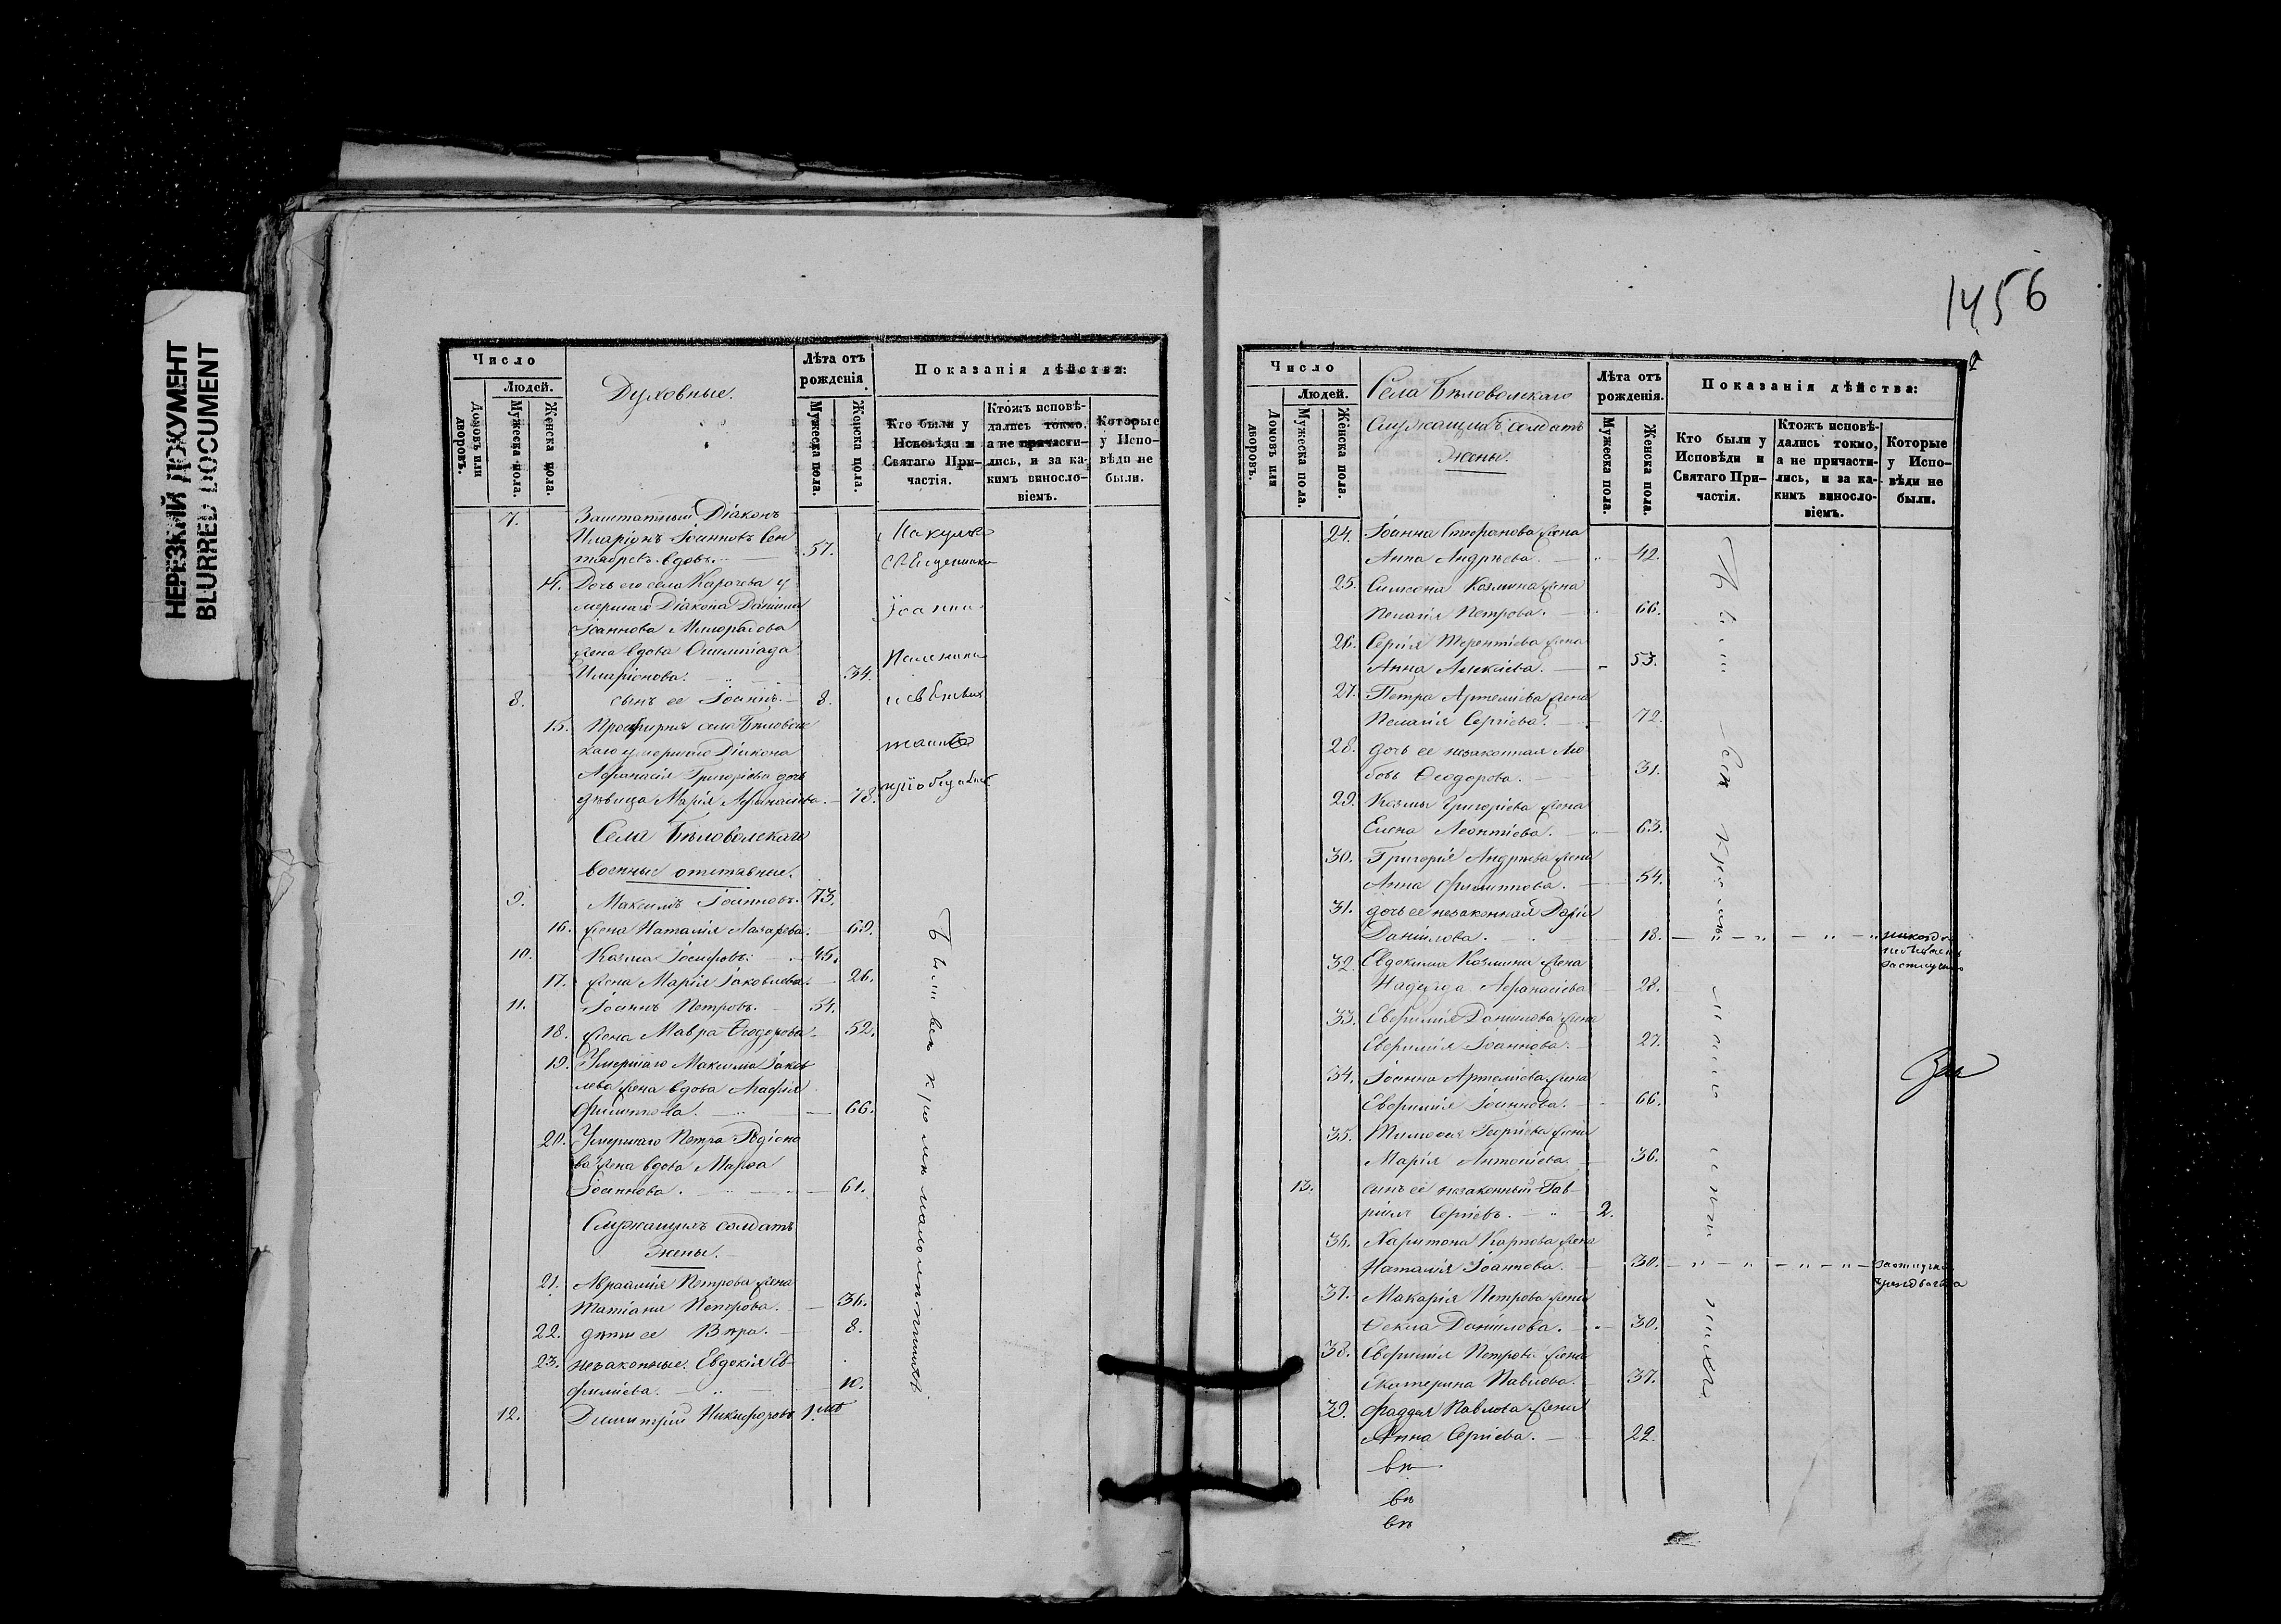 НЕРЕЗКИЙ ДОКУМЕНТ
BLURRED DOCUMENT
Число
Людей.
Домовъ или дворовъ.
Мужеска пола.
Женска пола.
Духовные.
Лѣта отъ рожденія
Мужеска пола.
Женска пола.
Показанія дѣйства:
Кто были у Исповѣди и Святаго При-частія.
Ктожъ исповѣ-дались токмо, а не причасти-лись, и за ка-кимъ виносло-віемъ.
Которые у Испо-вѣди не были.
7. Заштатный Діаконъ
Иларіонъ Іоанновъ
вдовъ. 57.
14. Дочь его села Карачева у
мершаго Діакона Даніила
Іоаннова
жена вдова Олимпіада
Иларіонова. 34.
8. сынъ ее Іоаннъ. 8.
15. Просфирня села Бѣловолж
скаго умершаго Діакона
Афанасія Григорьева дочь
дѣвица Марія Афанасіева. 78.
Села Бѣловолжскаго
военные отставные.
9. Максимъ Іоанновъ. 73.
16. жена Наталія Лазарева. 69.
10. Козма Іосифовъ. 45.
17. жена Марія Іаковлева. 26.
11. Іоаннъ Петровъ. 54.
18. жена Мавра Ѳеодорова 52.
19. Умершаго Максима Іаков
лева жена вдова Агафія
Филиппова. 66.
20. Умершаго Петра Родіоно
ва жена вдова Марѳа
Іоаннова. 61.
Служащихъ солдатъ
жены.
21. Авраамія Петрова жена
Татіана Петрова. 36.
22. дѣти ее Вѣра. 8.
23. незаконные. Евдокія Ев-
фиміева. 10.
12. Димитрій Никифоровъ 1.
Были всѣ кромѣ малолѣтнихъ
1456
Число
Людей.
Домовъ или дворовъ.
Мужеска пола.
Женска пола.
Села Бѣловолжскаго
Служащихъ солдатъ
жены.
Лѣта отъ рожденія.
Мужеска пола.
Женска пола.
Показанія дѣйства:
Кто были у Исповѣди и Святаго При-частія.
Ктожъ исповѣ-дались токмо, а не причасти-лись, и за ка-кимъ виносло-віемъ.
Которые у Испо-вѣди не были.
24. Іоанна Стефанова жена
Анна Андреева. 42.
25. Симеона Козмина жена
Пелагія Петрова. 66.
26. Сергія Терентіева жена
Анна Алексіева. 53.
27. Петра Артеміева жена
Пелагія Сергіева. 72.
28. дочь ее незаконная Лю
бовь Ѳеодорова. 31.
29. Козмы Григоріева жена
Елена Леонтіева. 63.
30. Григорія Андреева жена
Анна Филиппова. 54.
31. дочь ее незаконная Дарія
Даніилова. 18.
32. Евдокима Козмина жена
Надежда Афанасіева 28.
33. Евфимія Данилова жена
Евфимія Іоаннова. 27.
34. Іоанна Артеміева жена
Евфимія Іоаннова. 66.
35. Тимофея Георгіева жена
Марія Антоніева. 36.
13. сынъ ее незаконный Гав-
ріилъ Сергіевъ. 2.
36. Харитона Карпова жена
Наталія Іоаннова. 30.
37. Макарія Петрова жена
Ѳекла Данилова. 30.
38. Евфимія Петрова жена
Екатерина Павлова. 37.
39. Фаддея Павлова жена
Анна Сергіева. 22.